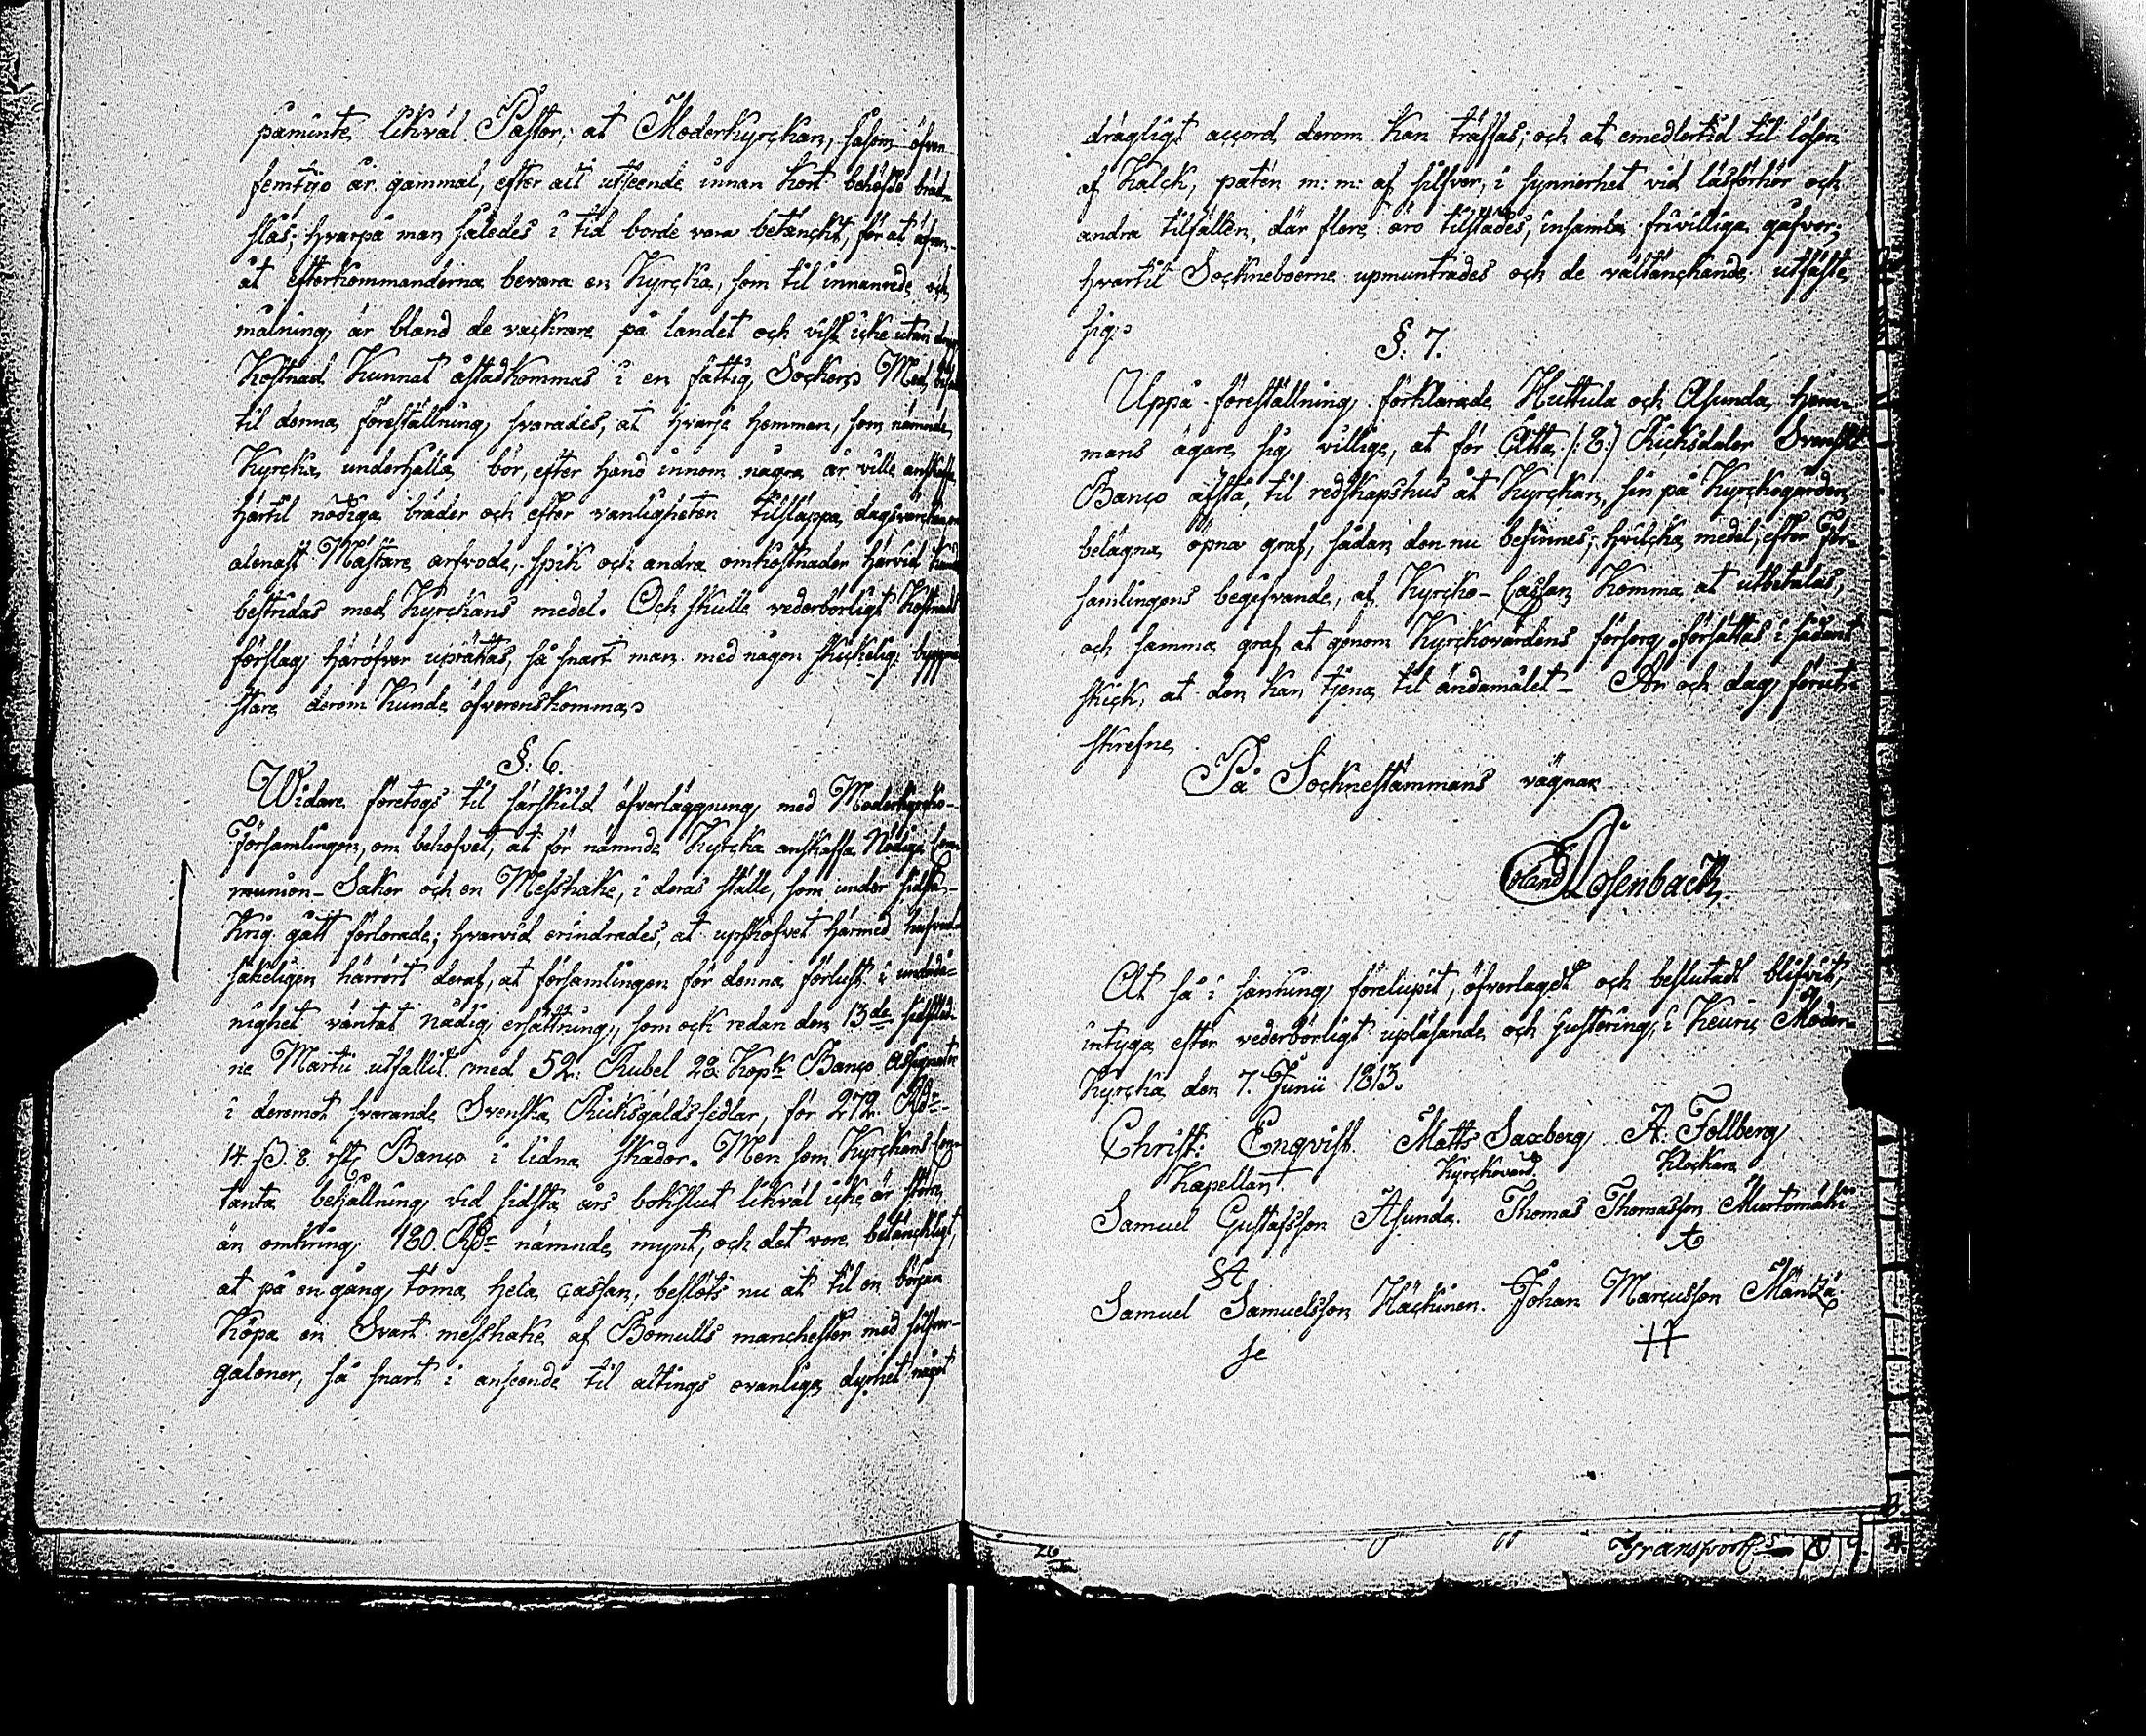 påminte likväl Pastor, at Moderkyrckan, såsom öfver
femtijo år gammal, efter alt utseende innan kort behöfde bräd-
slås; hvarpå man således i tid borde vara betänckt, för at
åt efterkommanderna bevara en Kyrcka, som til innanrede och
målning är bland de vackrare på landet och visst icke utan
kostnad kunnat åstadkommas i en fattig Socken. Med
til denna föreställning svarades, at hvarje hemman, som nämnde
Kyrcka underhålla bör, efter hand innom några år ville anskaffa
härtil nödiga bräder och efter vanligheten tilsläppa dagsvercken
alenast Mästare arfvode, spik och andra omkostnader härvid
bestridas med Kyrckans medel. Och skulle vederbörligt kostnads
förslag häröfver uprättas, så snart man med någon skickelig byggmä-
stare derom kunde öfverenskomma.
§. 6.
Widare företogs til särskild öfverläggning med Moderkyrcko-
Församlingen, om behofvet, at för nämnde Kyrcka anskaffa Nödiga Com-
munion-Saker och en Messhake, i deras ställe, som under sidsta
Krig gått förlorade; hvarvid erindrades, at upskofvet härmed hufvud-
sakeligen härrört deraf, at församlingen för denna förlust i underdå-
nighet väntat nådig ersättning, som ock redan den 13de sidstled-
ne Martii utfallit med 52. Rubel 28 Kopk Banco Assignater
i deremot svarande Svenska Ricksgäldssedlar, för 272. Rdr
14. ß. 8. rst. Banco i lidna skador. Men som Kyrckans Con-
tanta behållning vid sidsta års bokslut likväl icke är större
än omkring 180. Rdr nämnde mynt, och det vore betänckligt,
at på en gång töma hela cassan, beslöts nu at til en början
köpa en Svart messhake af Bomulls manchester med silfver-
galoner, så snart i anseende til altings ovanliga dyrhet något
drägligt accord derom kan träffas; och at emedlertid til lösen
af Kalck, patén m: m: af silfver, i synnerhet vid läsförhör och
andra tilfällen, där flere äro tilstädes, insamla frivilliga gåfvor,
hvartil Sockneboerne upmuntrades och de vältänckande utfäste
sig.
§. 7.
Uppå föreställning förklarade Huttula och Asunda hem-
mans ägare sig villige, at för Åtta /: 8:/ Ricksdaler Svenskt
Banco afstå, til redskapshus åt Kyrckan, sin på Kyrckogården
belägna öpna graf, sådan den nu befinnes; hvilcka medel, efter För-
samlingens begifvande, af Kyrcko-Cassan komma at utbetalas,
och samma graf at genom Kyrckovärdens försorg försättas i sådant
skick, at den kan tjena til ändamålet - År och dag, förut-
skrefne
På Sockneståmmans vägnar
Erland Rosenback.
At så i sanning förelupit, öfverlagdt och beslutadt blifvit,
intyga efter vederbörligt upläsande och justering, i Keuru Moder-
Kyrcka den 7. Junii 1813.
Christ: Enqvist Matts Saxberg A: Follberg
Kapellan Kyrckovärd Klockare
Samuel Gustafsson Asunda. Thomas Thomasson Murtomäki
Samuel Samuelsson Häckinen. Johan Marcusson Mänkä
Transport